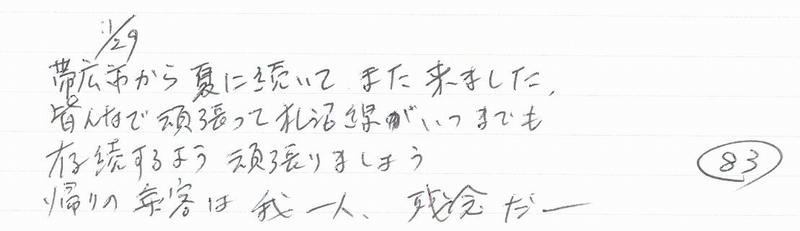 11/29
帯広市から夏に続いてまた来ました、
皆んなで頑張って札沼線がいつまでも
存続するよう頑張りましょう
83
帰りの乗客は我一人、残念だー